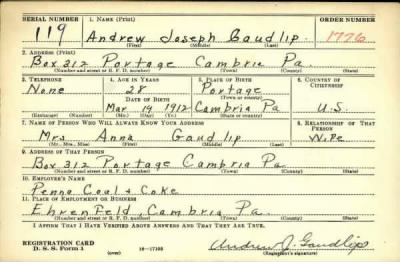 SERIAL NUMBER 1. NAME (Print) ORDER NUMBER
119 Andrew Joseph Gaudlip 1776
(First) (Middle) (Last)
2. ADDRESS (Print)
Box 312 Portage Cambria Pa.
(Number and street or R. F. D. number) (Town) (County) (State)
3. TELEPHONE 4. AGE IN YEARS 5. PLACE OF BIRTH 6. COUNTRY OF CITIZENSHIP
None 28 Portage
DATE OF BIRTH (Town or county)
Mar 19 1912 Cambria Pa U.S.
(Exchange) (Number) (Mo.) (Day) (Yr.) (State or country)
7. NAME OF PERSON WHO WILL ALWAYS KNOW YOUR ADDRESS 8. RELATIONSHIP OF THAT PERSON
Mrs. Anna Gaudlip Wife
(Mr., Mrs., Miss) (First) (Middle) (Last)
9. ADDRESS OF THAT PERSON
Box 312 Portage Cambria Pa
(Number and street or R. F. D. number) (Town) (County) (State)
10. EMPLOYER'S NAME
Penna Coal & Coke
11. PLACE OF EMPLOYMENT OR BUSINESS
Ehrenfeld, Cambria Pa.
(Number and street or R. F. D. number) (Town) (County) (State)
I AFFIRM THAT I HAVE VERIFIED ABOVE ANSWERS AND THAT THEY ARE TRUE.
REGISTRATION CARD
D. S. S. Form 1 (over) 16-17105 Andrew J. Gaudlip
(Registrant's signature)